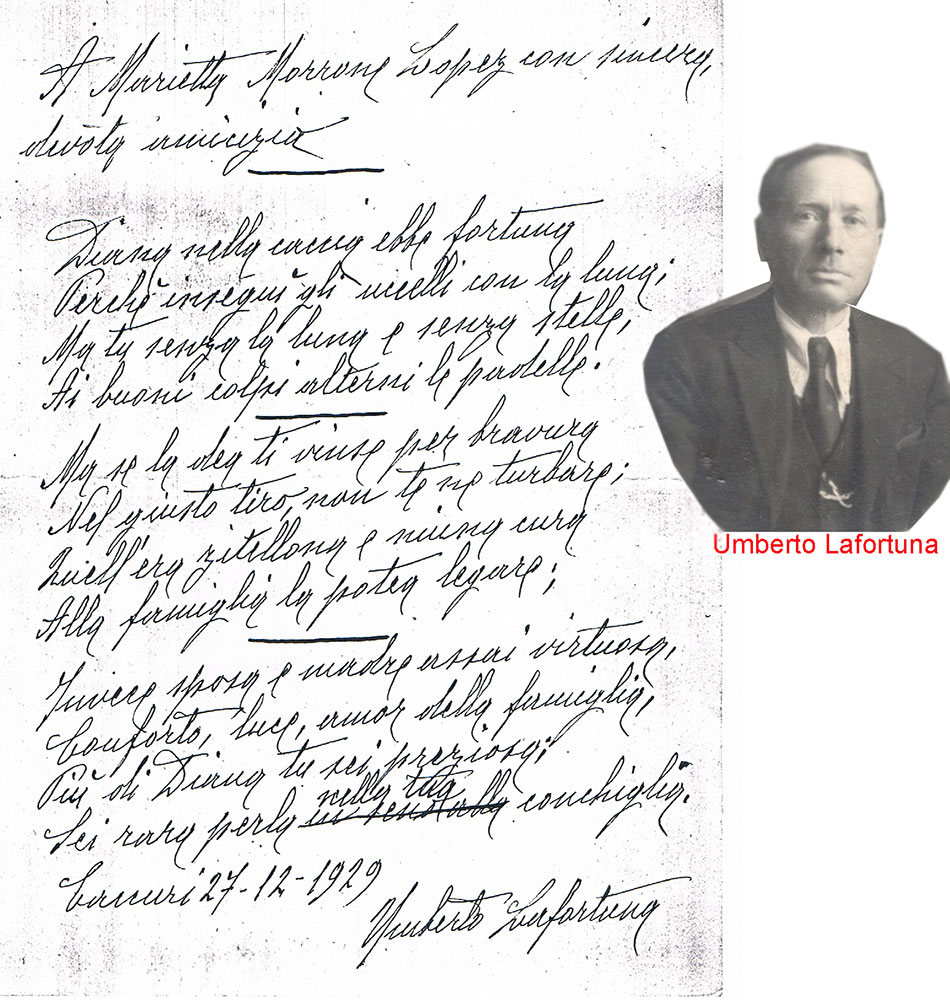 A Marietta Morrone Lopez con sincera,
devota amicizia
Diana nella caccia ebbe fortuna
Perchè inseguì gli uccelli con la luna;
Ma tu senza la luna e senza stelle,
Ai buoni colpi alterni le padelle.
Ma se la dea ti vinse per bravura
Nel giusto tiro, non te ne turbare;
Quell'era zitellona e niuna cura
Alla famiglia la potea legare;
Invece sposa e madre assai virtuosa,
Conforto, luce, amor della famiglia,
Più di Diana tu sei preziosa;
nella tua
Sei rara perla in seno alla conchiglia.
27-12-1929
Umberto Lafortuna
Umberto Lafortuna